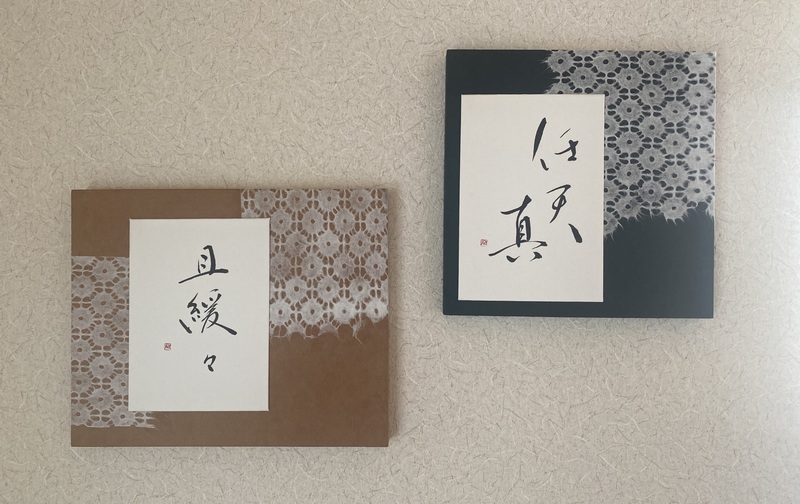 任天真
且緩々